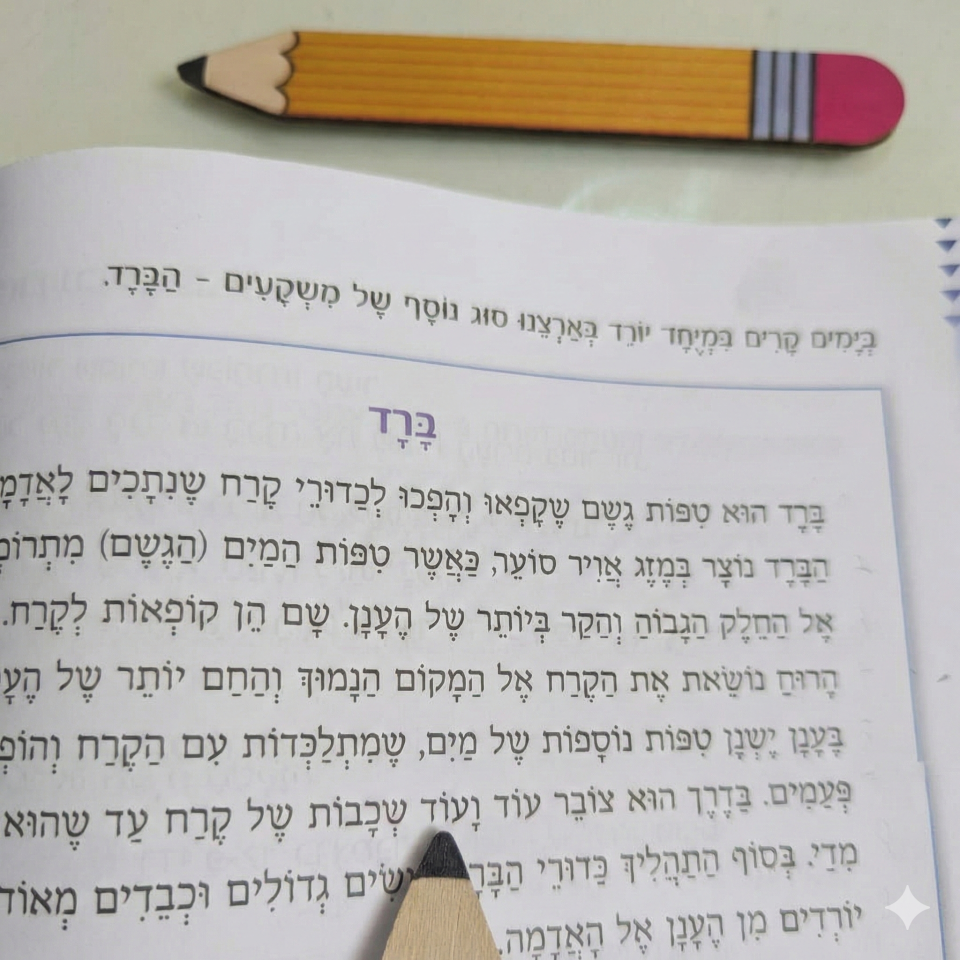 בְּיָמִים קָרִים בִּמְיֻחָד יוֹרֵד בְּאַרְצֵנוּ סוּג נוֹסָף שֶׁל מִשְׁקָעִים – הַבָּרָד.
בָּרָד
בָּרָד הוּא טִפּוֹת גֶּשֶׁם שֶׁקָּפְאוּ וְהָפְכוּ לְכַדּוּרֵי קֶרַח שֶׁנִּתָּכִים
הַבָּרָד נוֹצָר בְּמֶזֶג אֲוִיר סוֹעֵר, כַּאֲשֶׁר טִפּוֹת הַמַּיִם (הַגֶּשֶׁם)
אֶל הַחֵלֶק הַגָּבוֹהַּ וְהַקַּר בְּיוֹתֵר שֶׁל הֶעָנָן. שָׁם הֵן קוֹפְאוֹת לְקֶרַח.
הָרוּחַ נוֹשֵׂאת אֶת הַקֶּרַח אֶל הַמָּקוֹם הַנָּמוּךְ וְהַחַם יוֹתֵר שֶׁל
בֶּעָנָן יֶשְׁנָן טִפּוֹת נוֹסָפוֹת שֶׁל מַיִם, שֶׁמִּתְלַכְּדוֹת עִם הַקֶּרַח
פְּעָמִים. בַּדֶּרֶךְ הוּא צוֹבֵר עוֹד וָעוֹד שְׁכָבוֹת שֶׁל קֶרַח עַד שֶׁהוּא
מִדַּי. בְּסוֹף הַתַּהֲלִיךְ כַּדּוּרֵי גְּדוֹלִים וּכְבֵדִים מְאוֹד
יוֹרְדִים מִן הֶעָנָן אֶל הָאֲדָמָה.